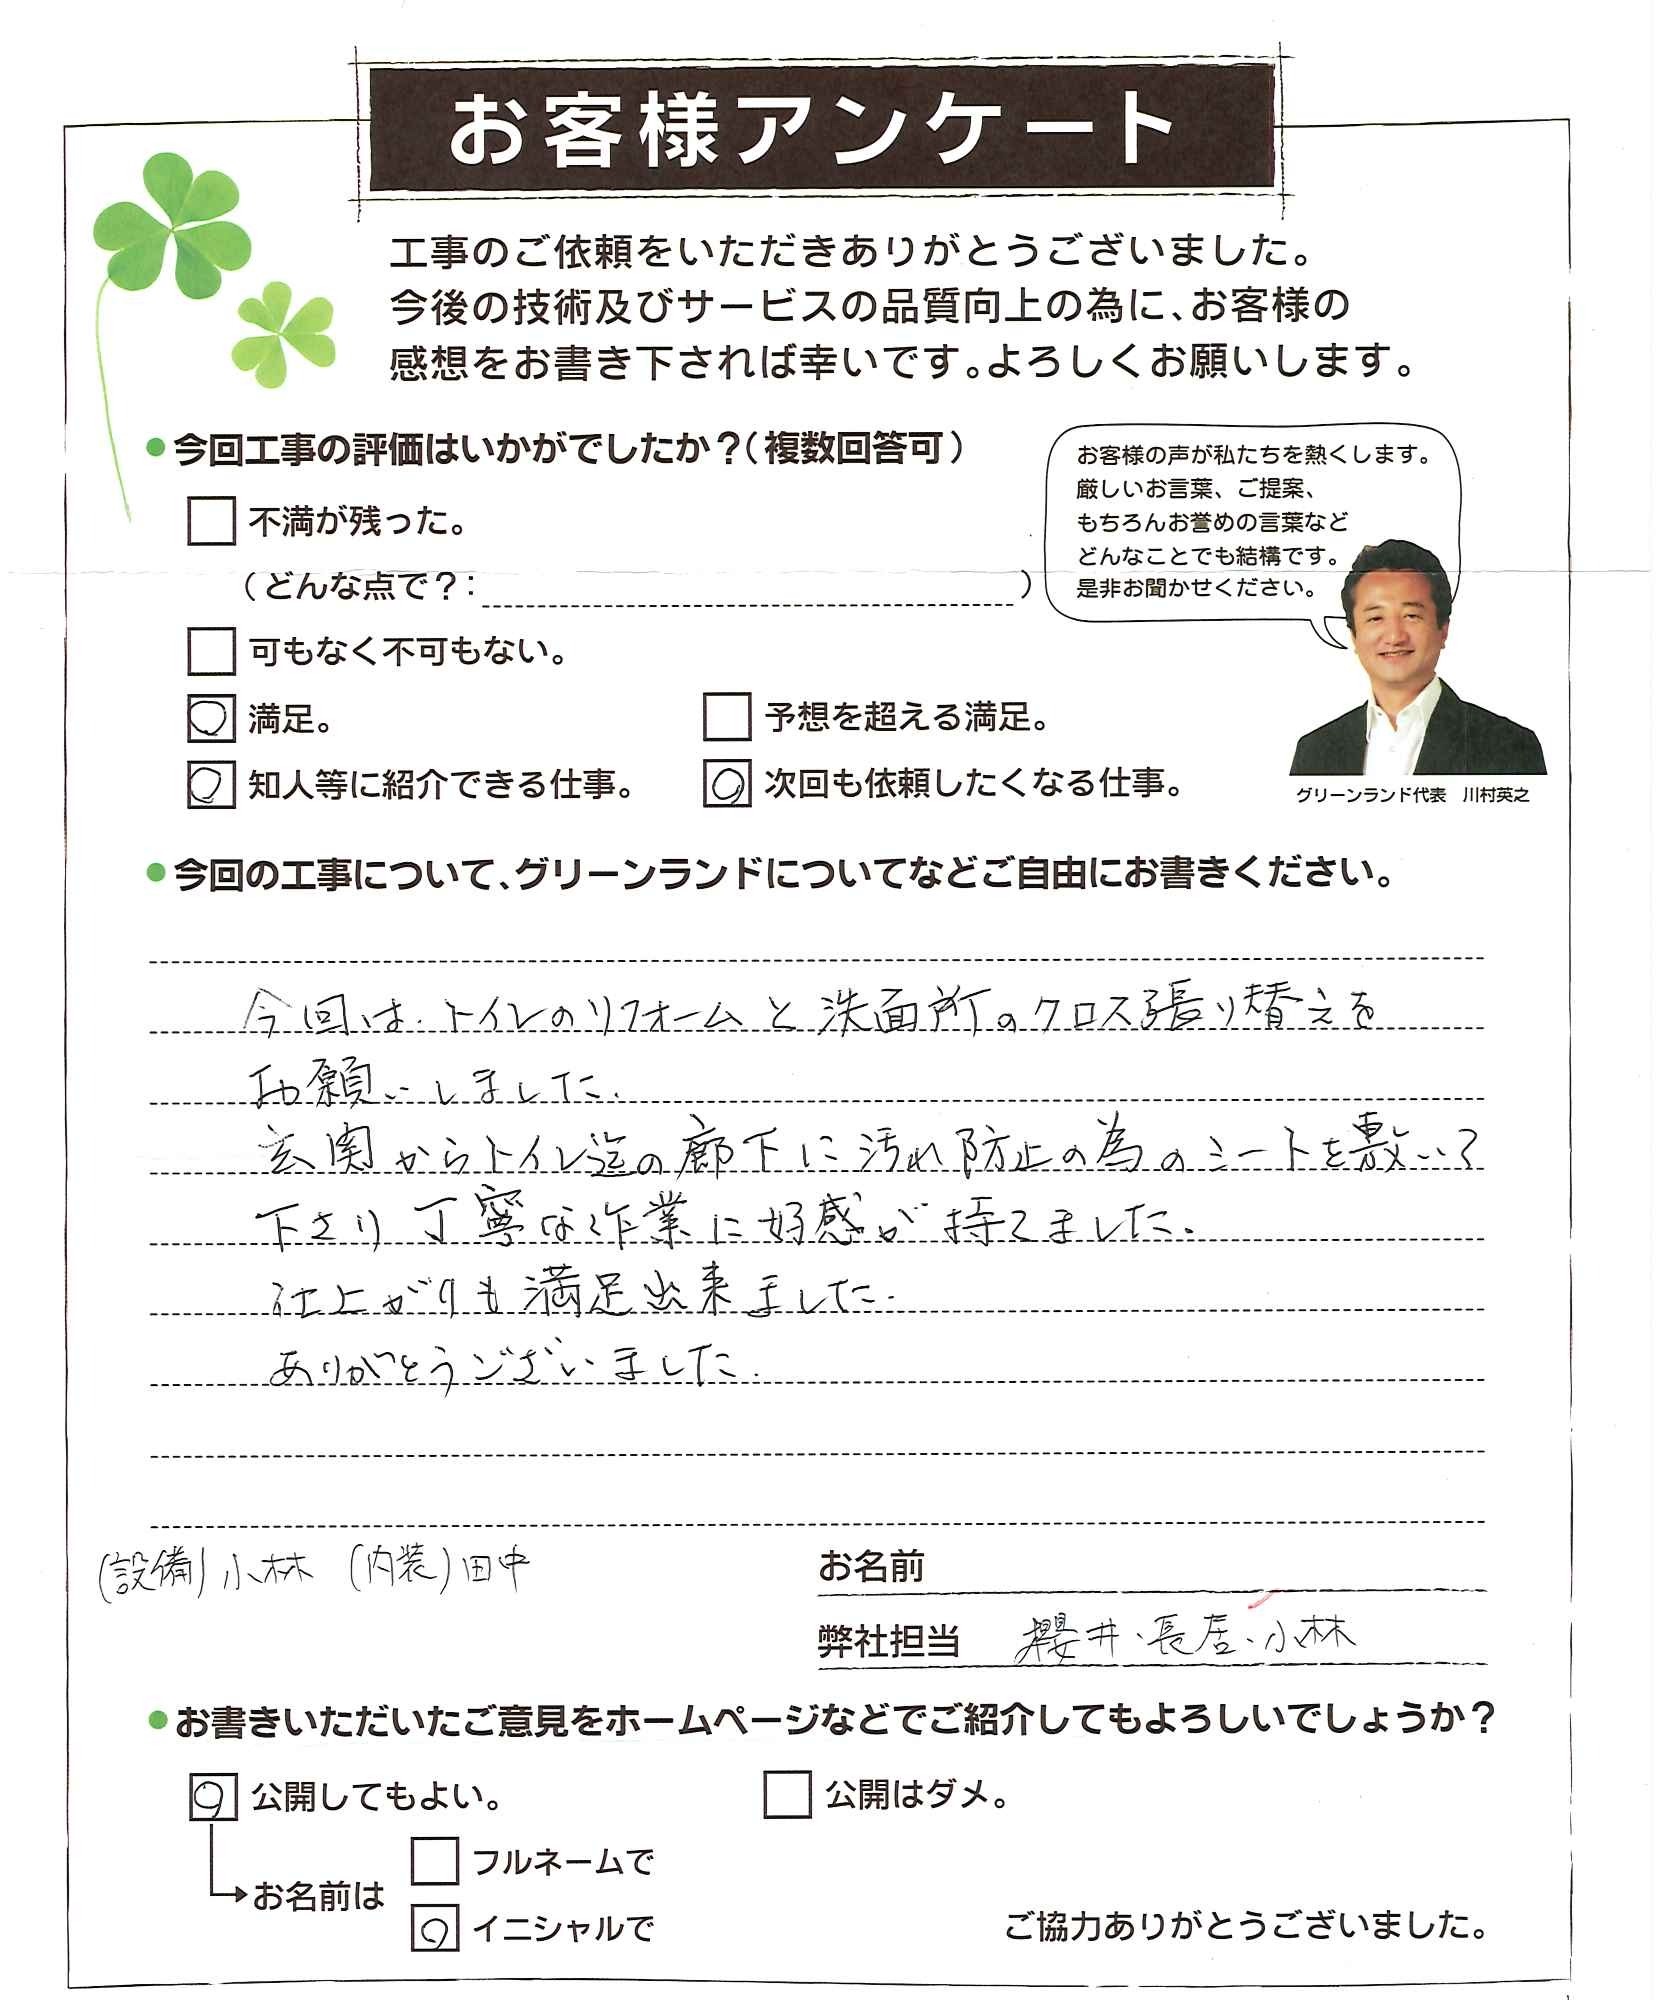 お客様アンケート
工事のご依頼をいただきありがとうございました。
今後の技術及びサービスの品質向上の為に、お客様の
感想をお書き下されば幸いです。よろしくお願いします。
●今回工事の評価はいかがでしたか？（複数回答可）
お客様の声が私たちを熱くします。
厳しいお言葉、ご提案、
もちろんお誉めの言葉など
どんなことでも結構です。
是非お聞かせください。
不満が残った。
（どんな点で？： ）
可もなく不可もない。
満足。
予想を超える満足。
知人等に紹介できる仕事。
次回も依頼したくなる仕事。
グリーンランド代表 川村英之
●今回の工事について、グリーンランドについてなどご自由にお書きください。
今回は、トイレのリフォームと洗面所のクロス張り替えを
お願いしました.
玄関からトイレ迄の廊下に汚れ防止の為のシートを敷いて
下さり丁寧な作業に好感が持てました.
仕上がりも満足出来ました.
ありがとうございました.
(設備)小林 (内装)田中
お名前
弊社担当 櫻井、長居、小林
●お書きいただいたご意見をホームページなどでご紹介してもよろしいでしょうか？
公開してもよい。
公開はダメ。
お名前は
フルネームで
イニシャルで
ご協力ありがとうございました。